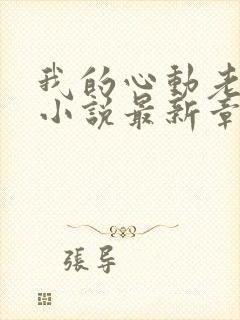 我的心動老
小說最新章
張導